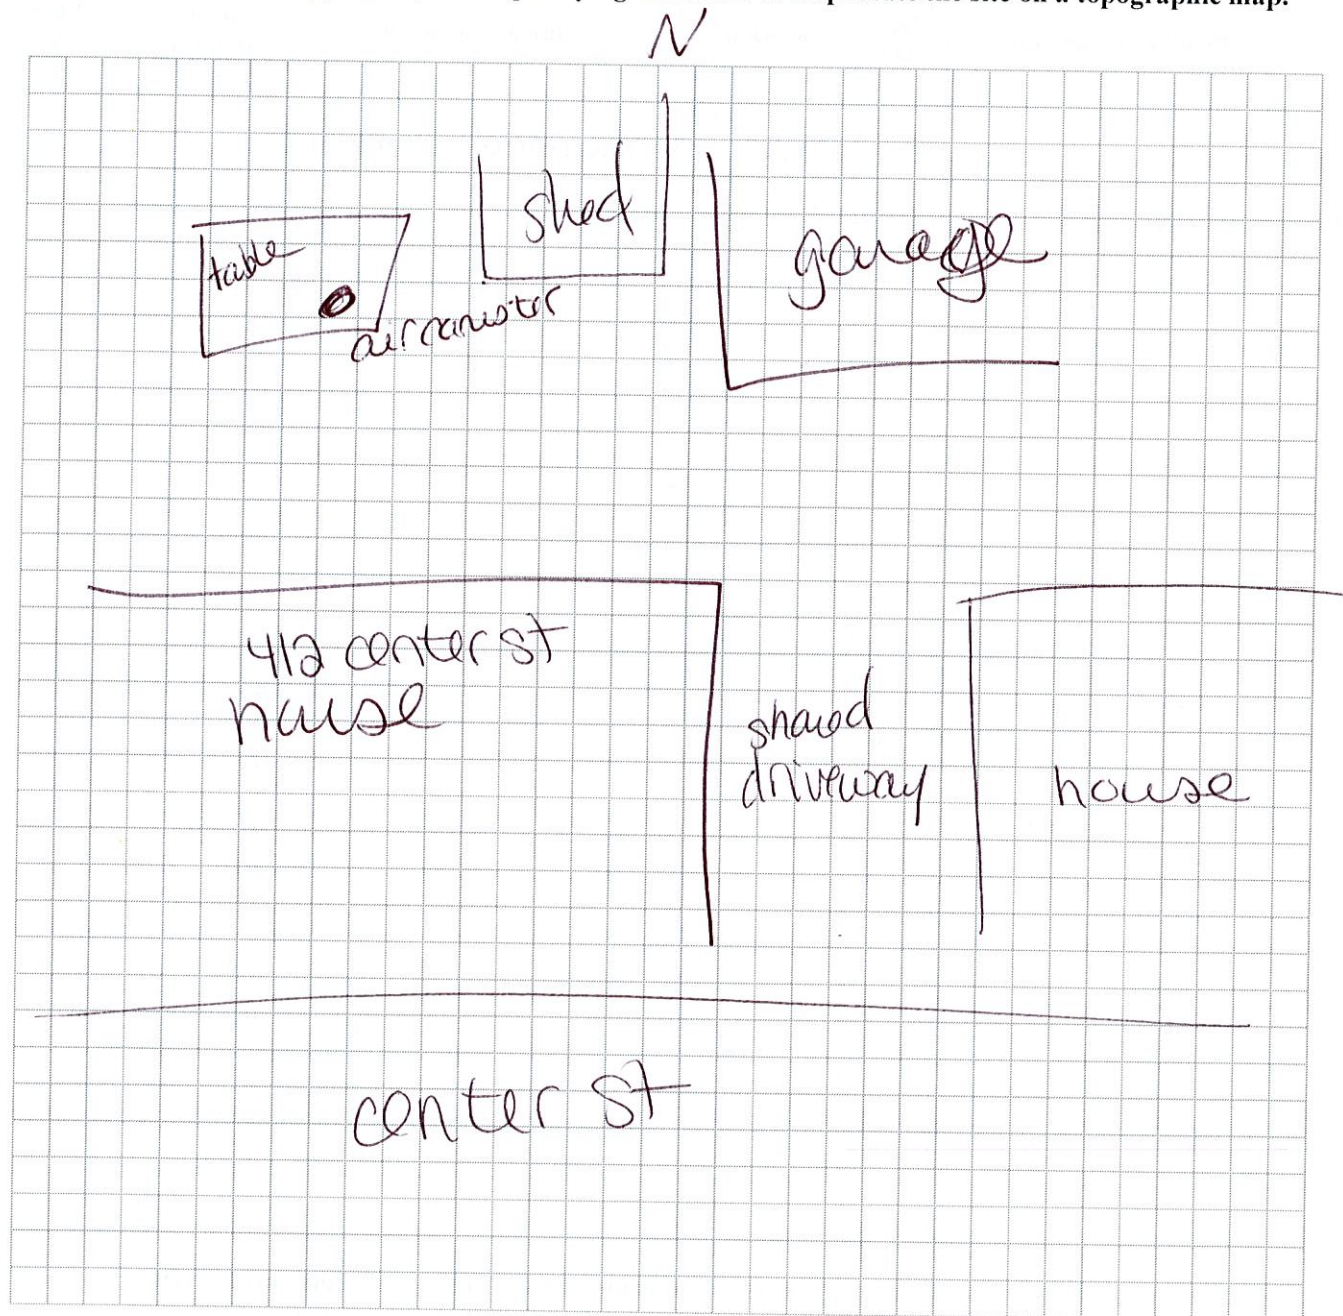 the site on a topographic map.
N
shed
table
garage
air canister
412 center st
house
shared
driveway
house
center st